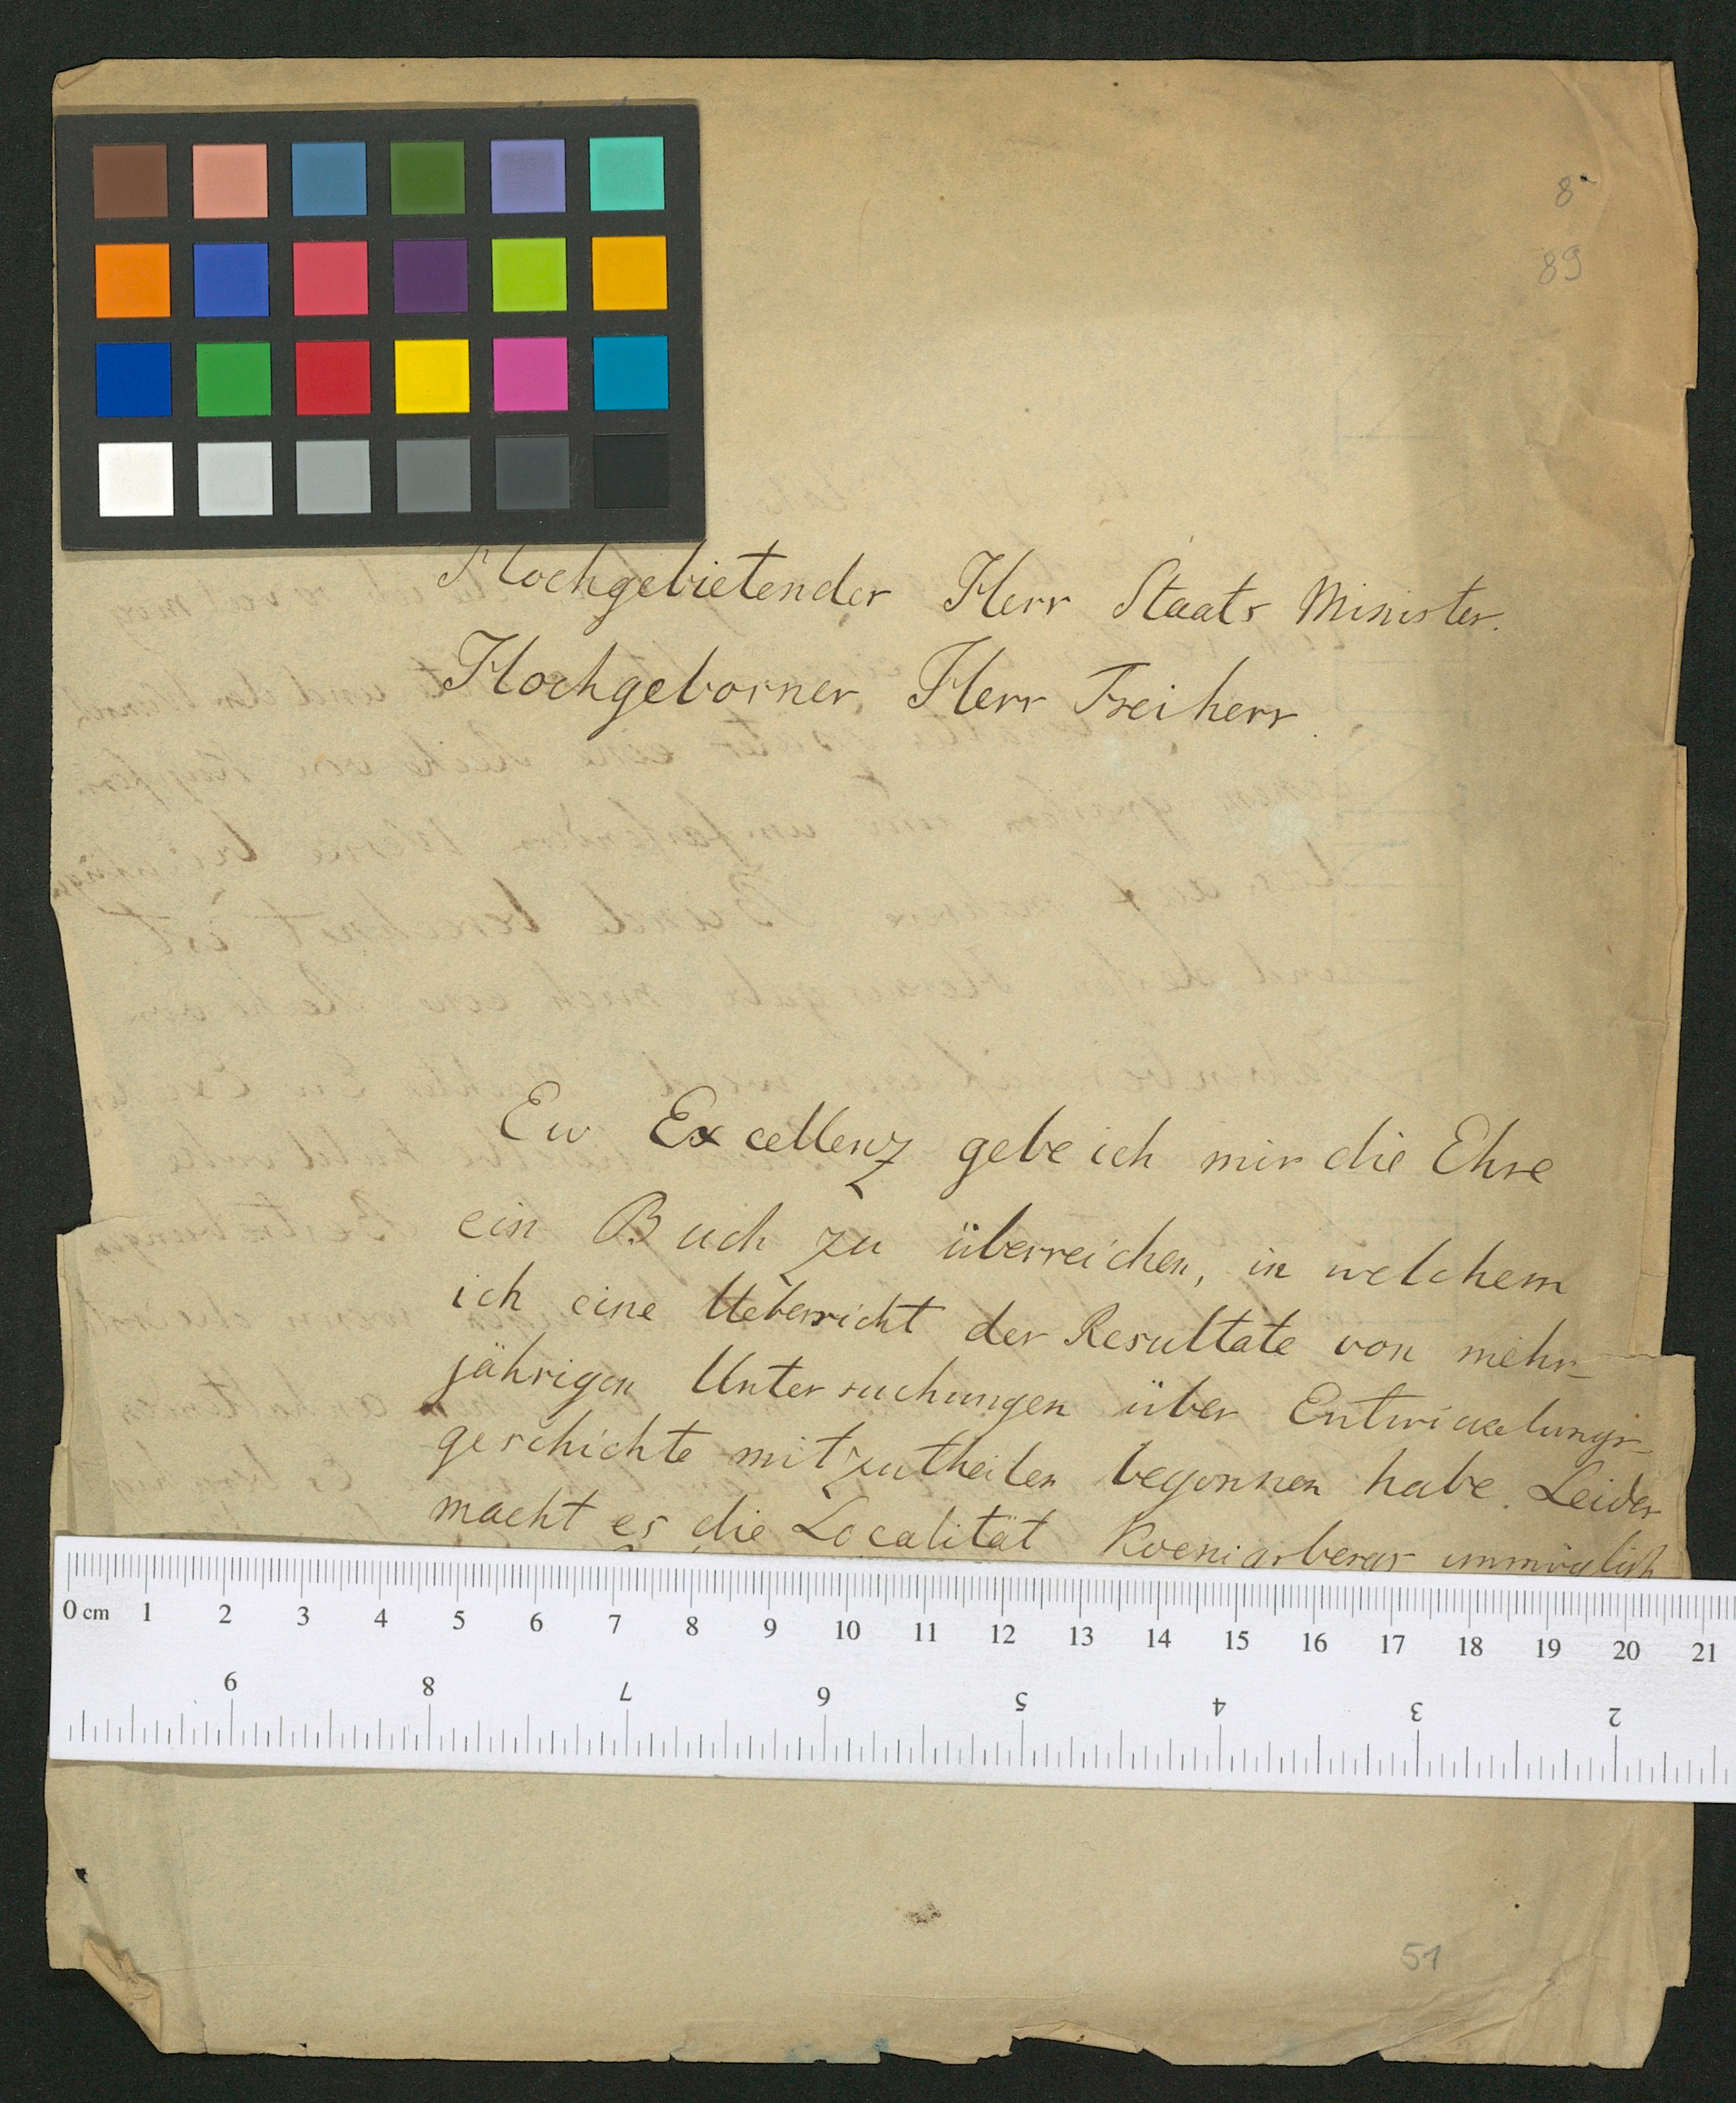 8
89
Hochgebietender Herr Staats Minister.
Hochgeborner Herr Freiherr.
Ew Excellenz gebe ich mir die Ehre
ein Buch zu überreichen, in welchem
ich eine Uebersicht der Resultate von mehr-
jährigen Untersuchungen über Entwickelungs-
geschichte mitzutheilen begonnen habe. Leider
macht es die Localität Koenigsbergs unmöglich
0 cm 1 2 3 4 5 6 7 8 9 10 11 12 13 14 15 16 17 18 19 20 21
9 8 7 6 5 4 3 2
51